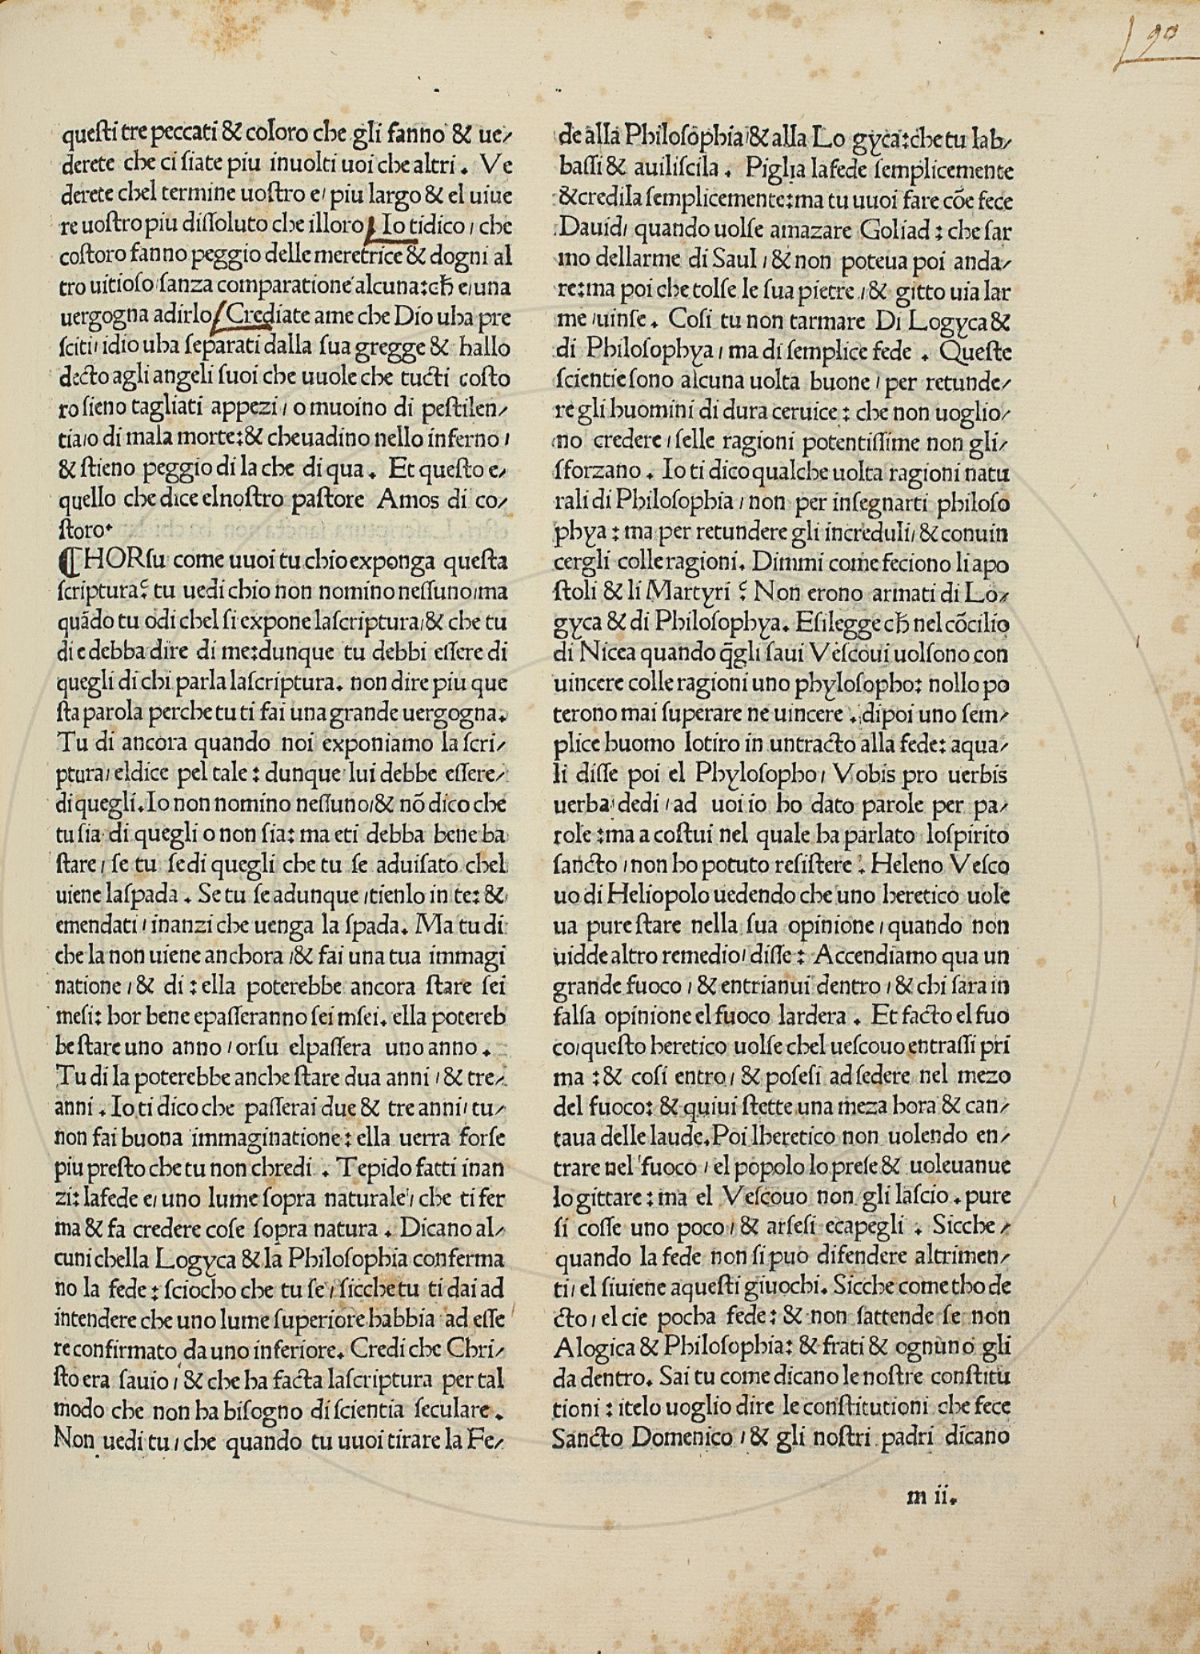 90
questi tre peccati & coloro che gli fanno & ue/
derete che ci siate piu inuolti uoi che altri. Ve
derete chel termine uostro e/ piu largo & el uiue
re uostro piu dissoluto che illoro/ Io tidico/ che
costoro fanno peggio delle meretrice & dogni al
tro uitioso sanza comparatione alcuna: cħ e/ una
uergogna adirlo/ Crediate ame che Dio uha pre
sciti/ idio uha separati dalla sua gregge & hallo
decto agli angeli suoi che uuole che tucti costo
ro sieno tagliati appezi/ o muoino di pestilen/
tia/ o di mala morte: & cheuadino nello inferno/
& stieno peggio di la che di qua. Et questo e/
quello che dice elnostro pastore Amos di co/
storo.
¶HORsu come uuoi tu chio exponga questa
scriptura? tu uedi chio non nomino nessuno/ ma
quādo tu odi chel si expone lascriptura/ & che tu
di e debba dire di me: dunque tu debbi essere di
quegli di chi parla lascriptura. non dire piu que
sta parola perche tu ti fai una grande uergogna.
Tu di ancora quando noi exponiamo la scri/
ptura/ eldice pel tale: dunque lui debbe essere/
di quegli. Io non nomino nessuno/ & nō dico che
tu sia di quegli o non sia: ma eti debba bene ba
stare/ se tu se di quegli che tu se aduisato chel
uiene laspada. Se tu se adunque/ tienlo in te: &
emendati/ inanzi che uenga la spada. Ma tu di
che la non uiene anchora/ & fai una tua immagi
natione/ & di: ella poterebbe ancora stare sei
mesi: hor bene epasseranno sei msei. ella potereb
be stare uno anno/ orsu elpassera uno anno.
Tu di la poterebbe anche stare dua anni/ & tre/
anni. Io ti dico che passerai due & tre anni/ tu/
non fai buona immaginatione: ella uerra forse
piu presto che tu non chredi. Tepido fatti inan
zi: lafede e/ uno lume sopra naturale/ che ti fer
ma & fa credere cose sopra natura. Dicano al/
cuni chella Logyca & la Philosophia conferma
no la fede: sciocho che tu se/ sicche tu ti dai ad
intendere che uno lume superiore habbia ad esse
re confirmato da uno inferiore. Credi che Chri/
sto era sauio/ & che ha facta lascriptura per tal
modo che non ha bisogno di scientia seculare.
Non uedi tu/ che quando tu uuoi tirare la Fe/
de alla Philosophia & alla Lo gyca: che tu lab/
bassi & auiliscila. Piglia lafede semplicemente
& credila semplicemente: ma tu uuoi fare cōe fece
Dauid/ quando uolse amazare Goliad: che sar
mo dellarme di Saul/ & non poteua poi anda/
re: ma poi che tolse le sua pietre/ & gitto uia lar
me/ uinse. Cosi tu non tarmare Di Logyca &
di Philosophya/ ma di semplice fede. Queste
scientie sono alcuna uolta buone/ per retunde/
re gli huomini di dura ceruice: che non uoglio/
no credere/ selle ragioni potentissime non gli/
sforzano. Io ti dico qualche uolta ragioni natu
rali di Philosophia/ non per insegnarti philoso
phya: ma per retundere gli increduli/ & conuin
cergli colle ragioni. Dimmi come feciono li apo
stoli & li Martyri? Non erono armati di Lo/
gyca & di Philosophya. Esilegge cħ nel cōcilio
di Nicea quando q̄gli saui Vescoui uolsono con
uincere colle ragioni uno phylosopho: nollo po
terono mai superare ne uincere. dipoi uno sem/
plice huomo lotiro in untracto alla fede: aqua/
li disse poi el Phylosopho/ Vobis pro uerbis
uerba dedi/ ad uoi io ho dato parole per pa/
role: ma a costui nel quale ha parlato lospirito
sancto/ non ho potuto resistere. Heleno Vesco
uo di Heliopolo uedendo che uno heretico uole
ua pure stare nella sua opinione/ quando non
uidde altro remedio/ disse: Accendiamo qua un
grande fuoco/ & entrianui dentro/ & chi sara in
falsa opinione el fuoco lardera. Et facto el fuo
co/ questo heretico uolse chel uescouo entrassi pri
ma: & cosi entro/ & posesi ad sedere nel mezo
del fuoco: & quiui stette una meza hora & can/
taua delle laude. Poi lheretico non uolendo en/
trare nel fuoco/ el popolo lo prese & uoleuanue
lo gittare: ma el Vescouo non gli lascio. pure
si cosse uno poco/ & arsesi ecapegli. Sicche/
quando la fede non si puo difendere altrimen/
ti/ el siuiene aquesti giuochi. Sicche come tho de
cto/ el cie pocha fede: & non sattende se non
Alogica & Philosophia: & frati & ognuno gli
da dentro. Sai tu come dicano le nostre constitu
tioni: itelo uoglio dire le constitutioni che fece
Sancto Domenico/ & gli nostri padri dicano
m ii.